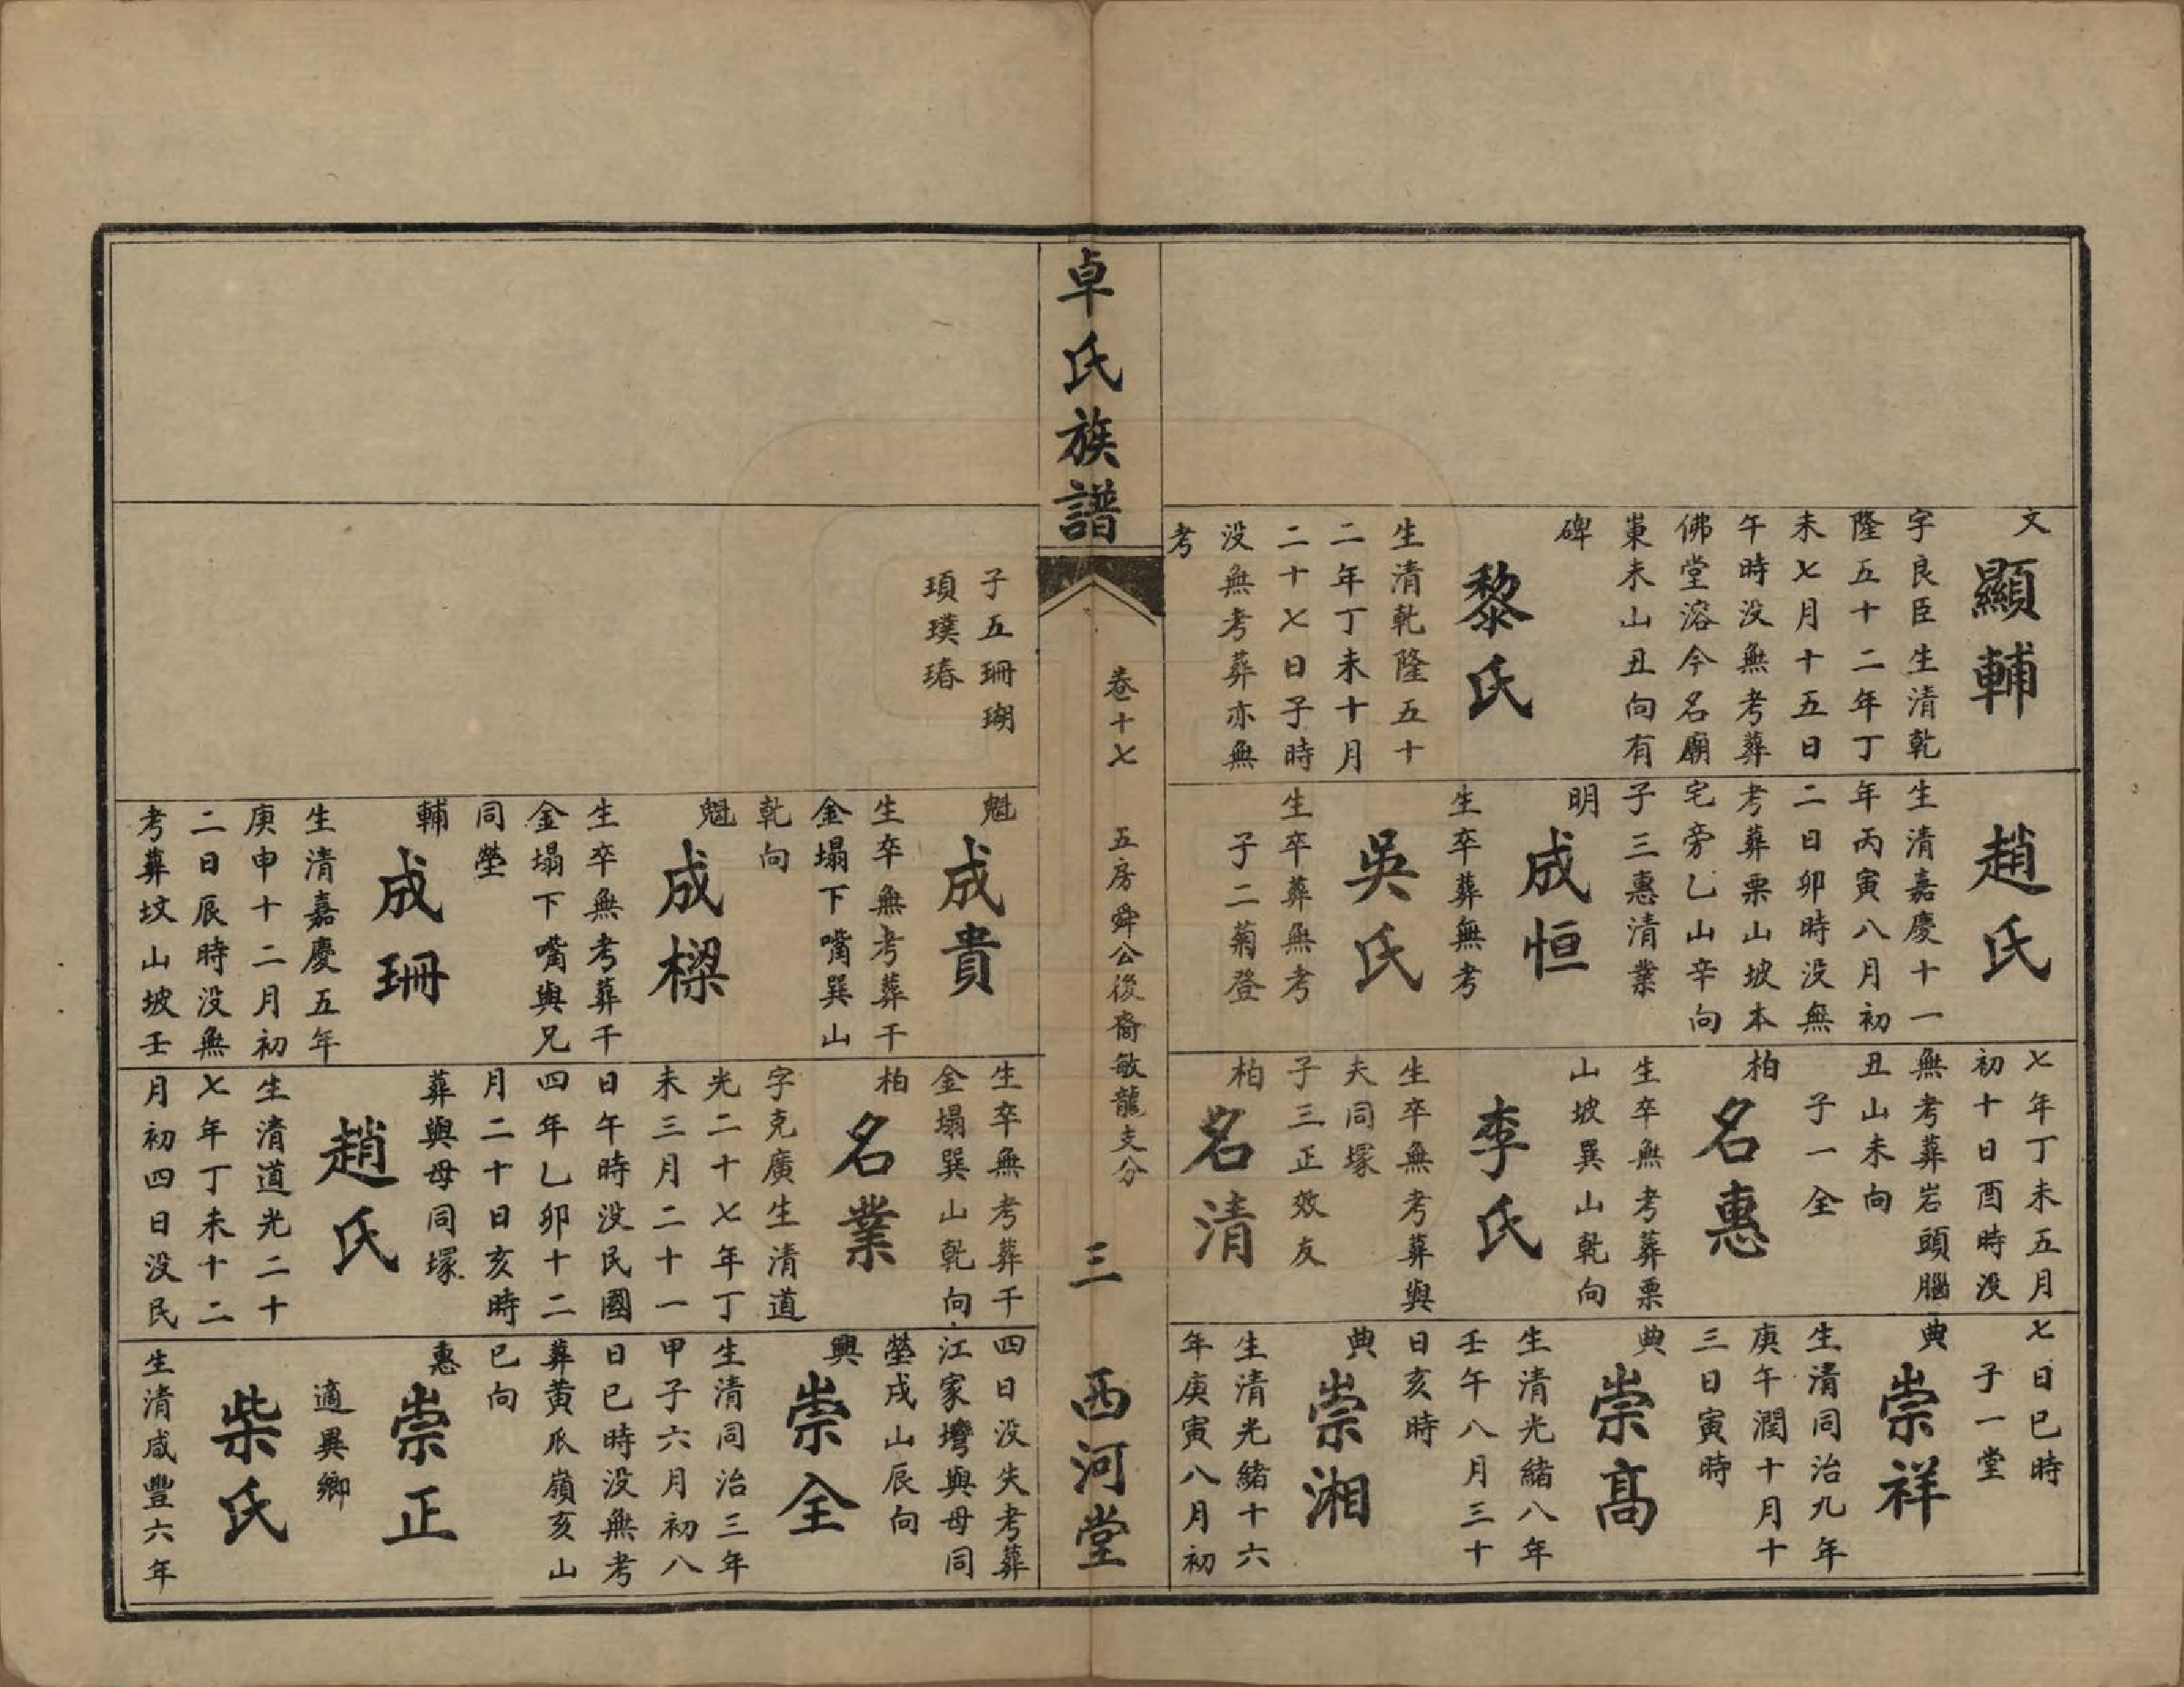 文
顯輔
字良臣生清乾
隆五十二年丁
未七月十五日
午時没無考葬
佛堂溶今名廟
東未山丑向有
碑
黎氏
生清乾隆五十
二年丁未十月
二十七日子時
没無考葬亦無
考
趙氏
生清嘉慶十一
年丙寅八月初
二日卯時没無
考葬栗山坡本
宅旁乙山辛向
子三惠清業
明
成恒
生卒葬無考
吳氏
生卒葬無考
子二菊登
七年丁未五月
初十日酉時没
無考葬岩頭腦
丑山未向
子一全
柏
名惠
生卒無考葬栗
山坡巽山乾向
李氏
生卒無考葬與
夫同塚
子三正效友
柏
名清
七日巳時
子一堂
典
崇祥
生清同治九年
庚午潤十月十
三日寅時
典
崇高
生清光緒八年
壬午八月三十
日亥時
典
崇湘
生清光緒十六
年庚寅八月初
卓氏族譜
卷十七
五房舜公後裔敏龍支分
三
西河堂
子五珊瑚
頊璞瑃
魁
成貴
生卒無考葬干
金塌下嘴巽山
乾向
魁
成樑
生卒無考葬干
金塌下嘴與兄
同塋
輔
成珊
生清嘉慶五年
庚申十二月初
二日辰時没無
考葬坟山坡壬
生卒無考葬干
金塌巽山乾向
柏
名業
字克廣生清道
光二十七年丁
未三月二十一
日午時没民國
四年乙卯十二
月二十日亥時
葬與母同塚
趙氏
生清道光二十
七年丁未十二
月初四日没民
四日没失考葬
江家壪與母同
塋戌山辰向
興
崇全
生清同治三年
甲子六月初八
日巳時没無考
葬黄瓜嶺亥山
巳向
惠
崇正
適異鄉
柴氏
生清咸豐六年